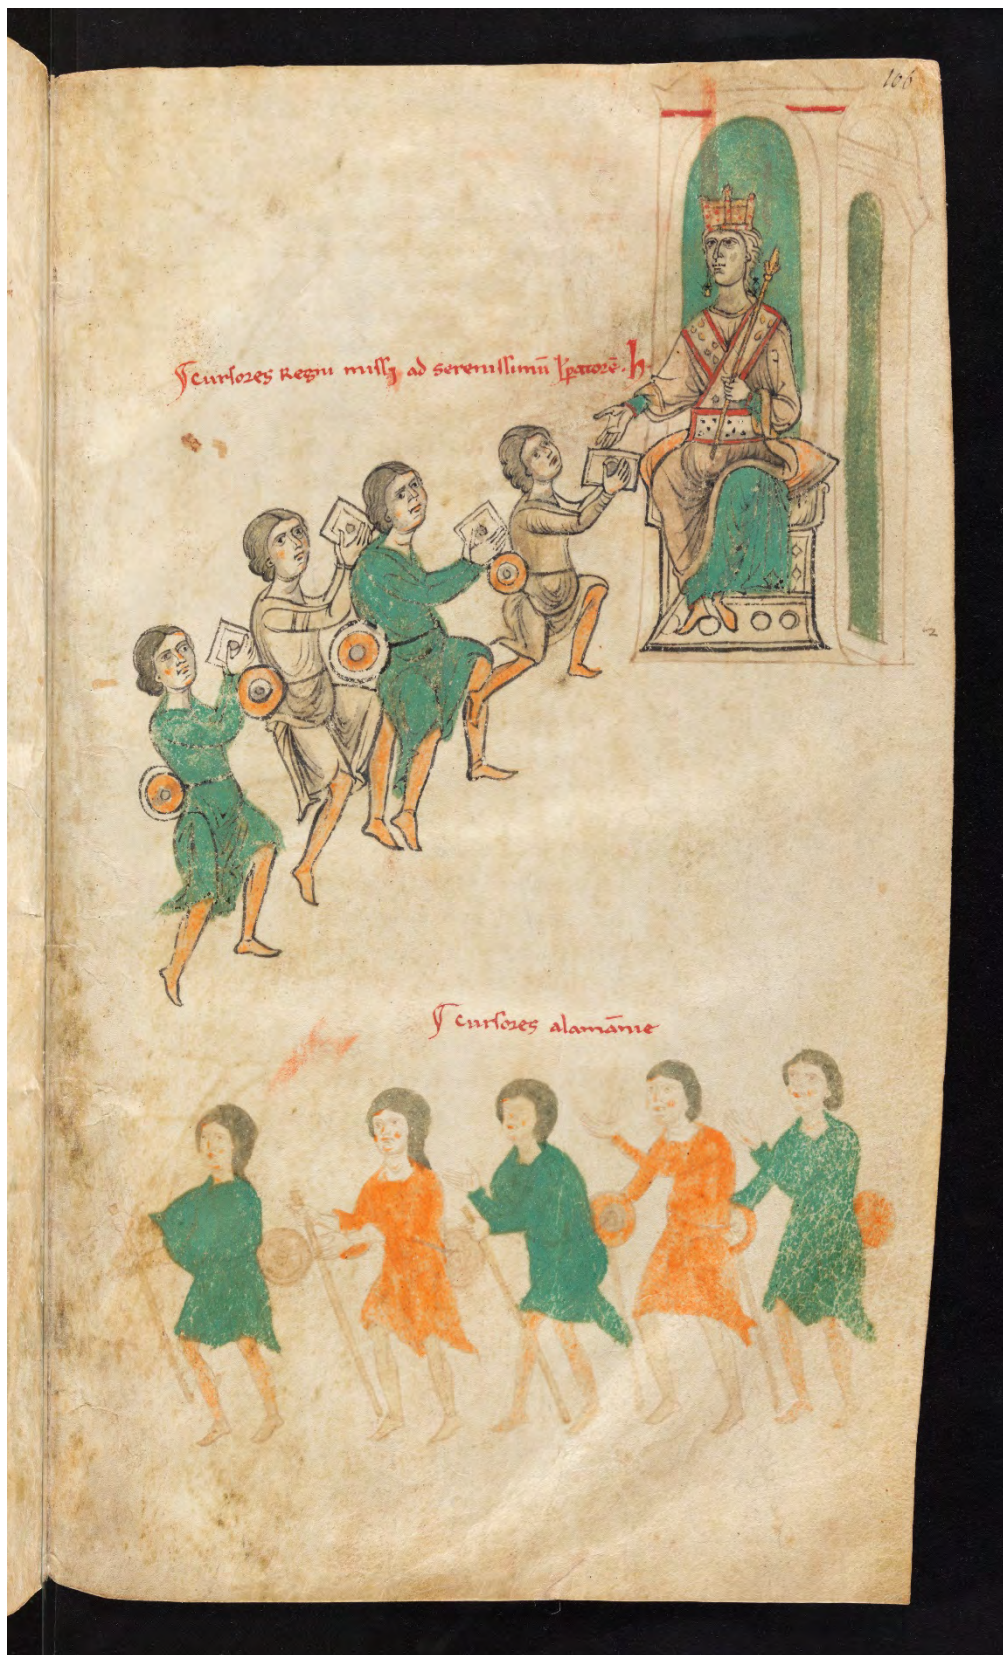 106
¶ cursores Regni missi ad serenissimū Īpatorē . h.
¶ cursores alamānie